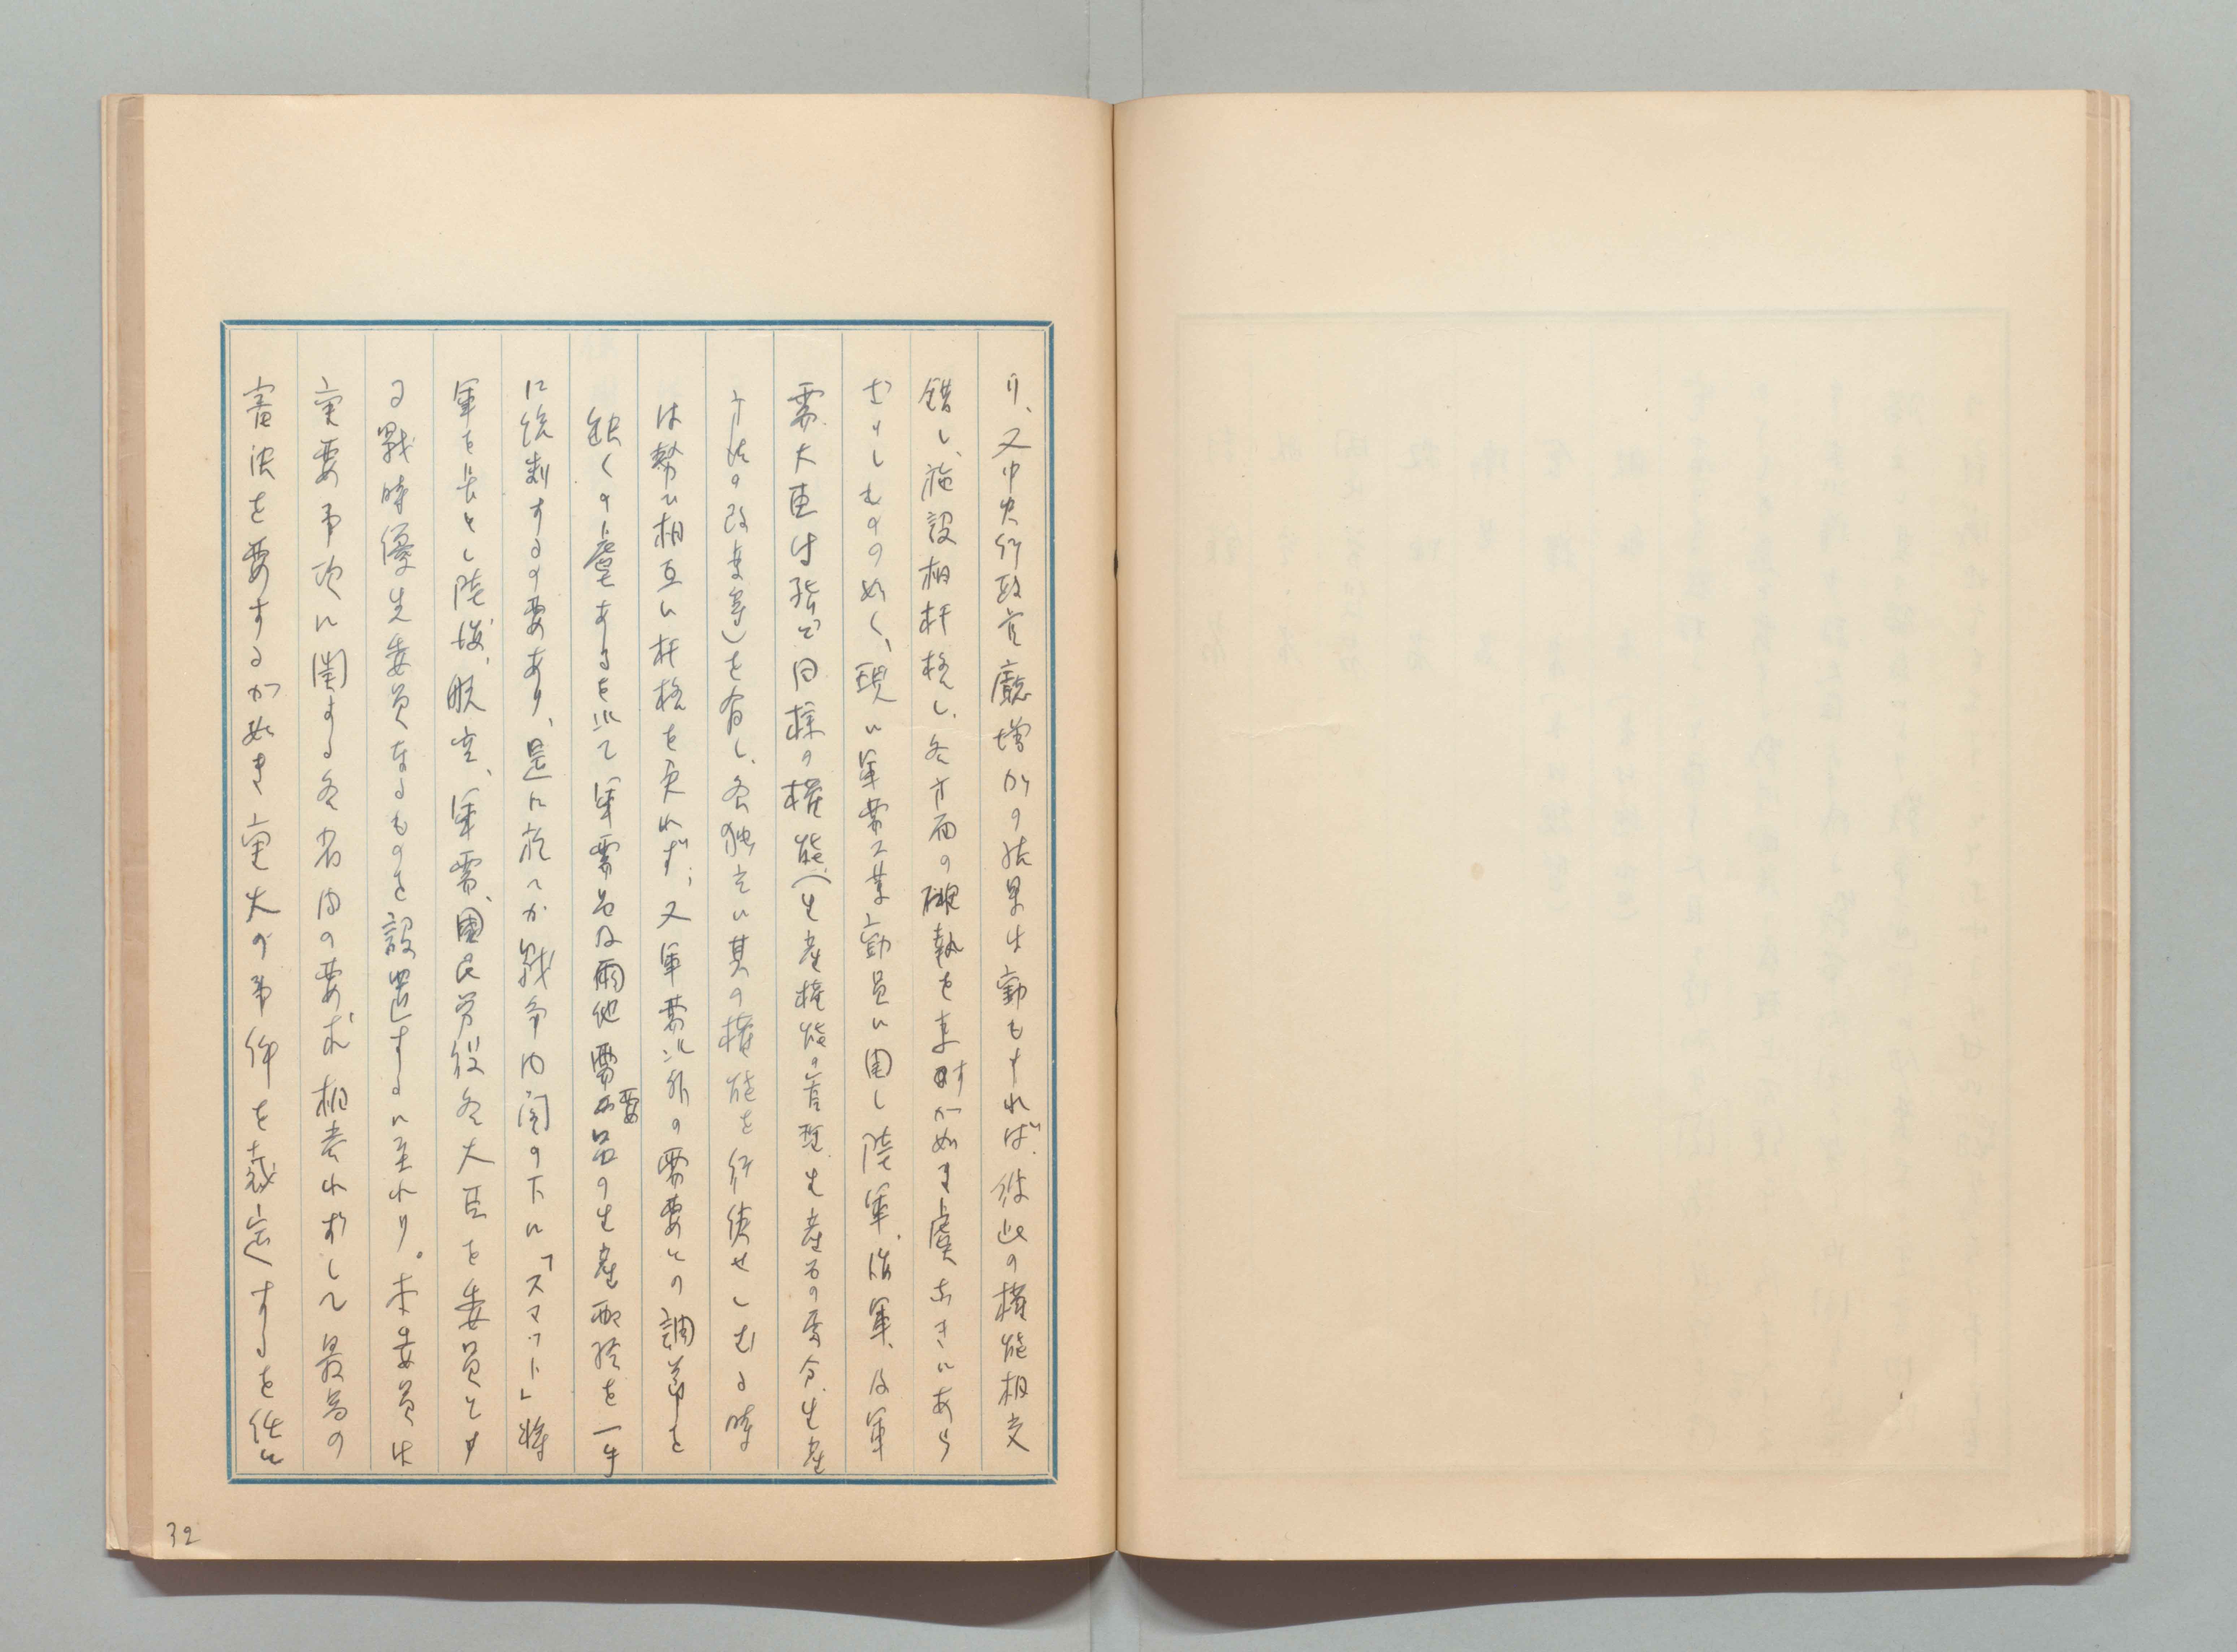 り、又中央行政官廳増加の結果は動もすれば、彼此の権能相交
錯し、施設相扞格し、各方面の確執を来すが如き虞なきにあら
ざりしものの如く、現に軍需工業動員に関し陸軍、海軍、及軍
需大臣は殆ど同様の権能(生産権能の管理、生産石の委令、生産
方法の改変等)を有し、各独立に其の権能を行使せしむる時
は勢ひ相互に扞格を免れず、又軍需以外の需要との調節を
缺くの虞あるを以て軍需品及爾他需要品の生産配給を一手
に統制するの要あり、是に於てか戦争内閣の下に「スマット」将
軍を長とし陸、海、航空、軍需、國民労役各大臣を委員とす
る戰時優先委員なるものを設置するに至れり。本委員は
重要事項に関する各省内の要求相表れずして最高の
審決を要するが如き重大の事件を裁定するを任と
32